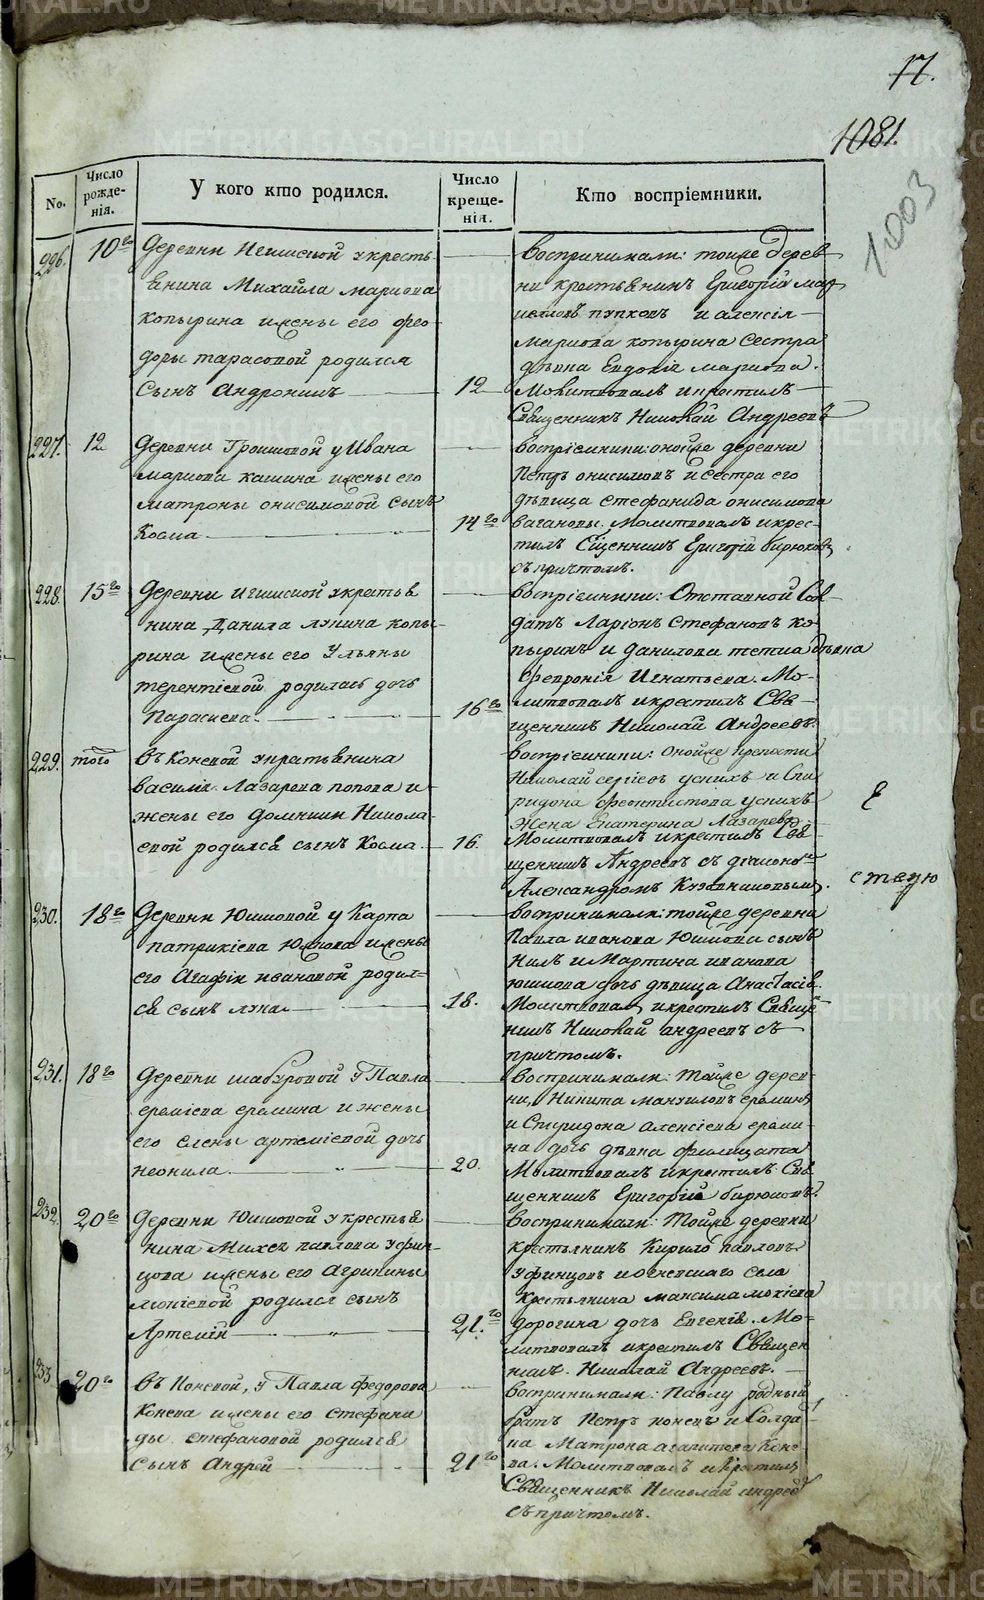 17.
1081.
1003
No.
Число рожденія.
У кого кто родился.
Число крещенія.
Кто воспріемники.
226.
10го
Деревни Игишской у кресть
янина Михайла маркова
копырина и жены его фео
доры тарасовой родился
сынъ Андроникъ
12
воспринимали: тойже дерев
ни крестьянинъ Григорій мар
пупковъ и алексія
маркова копырина сестра
дѣвка Евдокія маркова.
Молитвовалъ и крестилъ
Священникъ Николай Андреевъ
227.
12
Деревни Грошовой у Ивана
маркова кашина и жены его
матроны онисимовой сынъ
Косма
14го
воспріемники: оной же деревни
Петръ онисимовъ и сестра его
дѣвица стефанида онисимова
вагановы. Молитвовалъ и крес-
тилъ Сщенникъ Григорій бирюковъ
съ причтомъ.
228.
15го
Деревни игишской у крестья
нина Данила лукина копы-
рина и жены его Ульяны
терентіевой родилась дочь
Параскева
16го
воспріемники: Отставной сол-
датъ Ларіонъ Стефановъ ко-
пыринъ и данилова тетка дѣвка
Февронія Игнатьева. Мо-
литвовалъ и крестилъ Свя-
щенникъ Николай Андреевъ.
229.
того
въ Коневой у крестьянина
василія Лазарева попова и
жены его домники Никола-
евой родился сынъ Косма.
16.
воспріемники: оной же крепости
Николай сергіевъ ускихъ и Спи
ридона феоктистова ускихъ
жена Екатерина Лазарева
Молитвовалъ и крестилъ Свя-
щенникъ Андреевъ съ діакономъ
Александромъ Кузовниковымъ.
230.
18го
Деревни Юшковой у Карпа
патрикіева Юшкова и жены
его Агафіи ивановой родил-
ся сынъ лука
18.
воспринимали: тойже деревни
Павла иванова Юшкова сынъ
Нилъ и Мартина иванова
юшкова дочь дѣвица Анастасія.
Молитвовалъ и крестилъ Священ
никъ Николай андреевъ съ
причтомъ.
231.
18го
Деревни шабуровой у Павла
еремѣева еремина и жены
его елены артеміевой дочь
неонила
20.
воспринимали: тойже дерев-
ни, Никита мануиловъ ереминъ
и Спиридона алексіева ереми-
на дочь дѣвка фелицата
Молитвовалъ и крестилъ Свя
щенникъ Григорій бирюковъ.
232.
20го
Деревни Юшковой у крестья
нина Михея павлова уфин-
цова и жены его Агрипины
мокіевой родился сынъ
Артемій
21го
воспринимали: Тойже деревни
крестьянинъ Кирило павловъ
уфинцовъ и огневскаго села
крестьянина максима мокіева
дорогина дочь Евгенія. Мо-
литвовалъ и крестилъ Священ
никъ. Николай Андреевъ.
233
20го
въ Коневой, у Павла федорова
Конева и жены его стефани
ды стефановой родился
сынъ Андрей
21го
воспринимали: Павлу родный
братъ Петръ коневъ и солда-
ка Матрона агапитова Коне-
ва. Молитвовалъ и крестилъ
Священникъ Николай андреевъ
съ причтомъ.